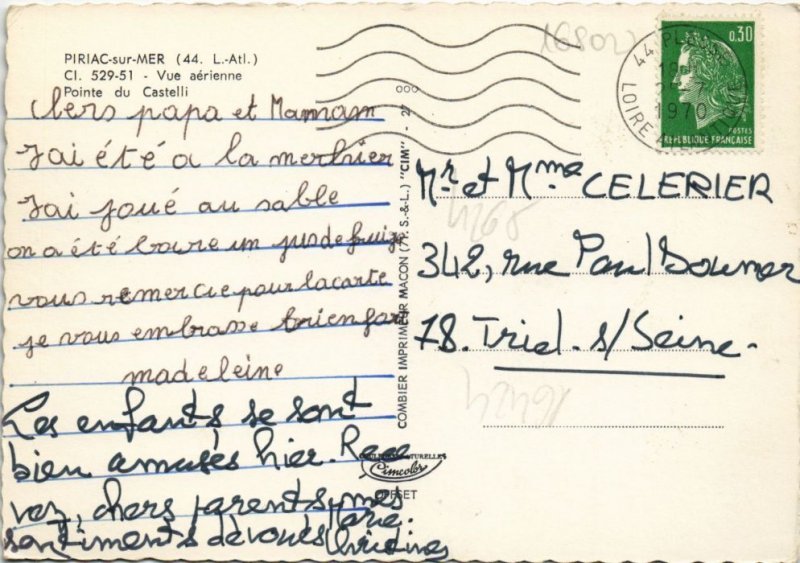 PIRIAC-sur-MER (44. L.-Atl.)
Cl. 529-51 - Vue aérienne
Pointe du Castelli
Chers papa et Mamam
J'ai été a la mer hier
J'ai joué au sable
on a été boire un jus de fruize
vous remercie pour la carte
je vous embrasse brien fort
madeleine
Les enfants se sont
bien amusés hier. Rece
vez, chers parents, mes
sentiments dévoués Marie
Christine
COMBIER IMPRIMEUR MACON (S.-&-L.) "CIM" - 27
Cimcolor
OFFSET
0,30
POSTES
RÉPUBLIQUE FRANÇAISE
44
1970
LOIRE
Mr et Mme CELERIER
342, rue Paul Doumer
78. Triel. s/Seine.